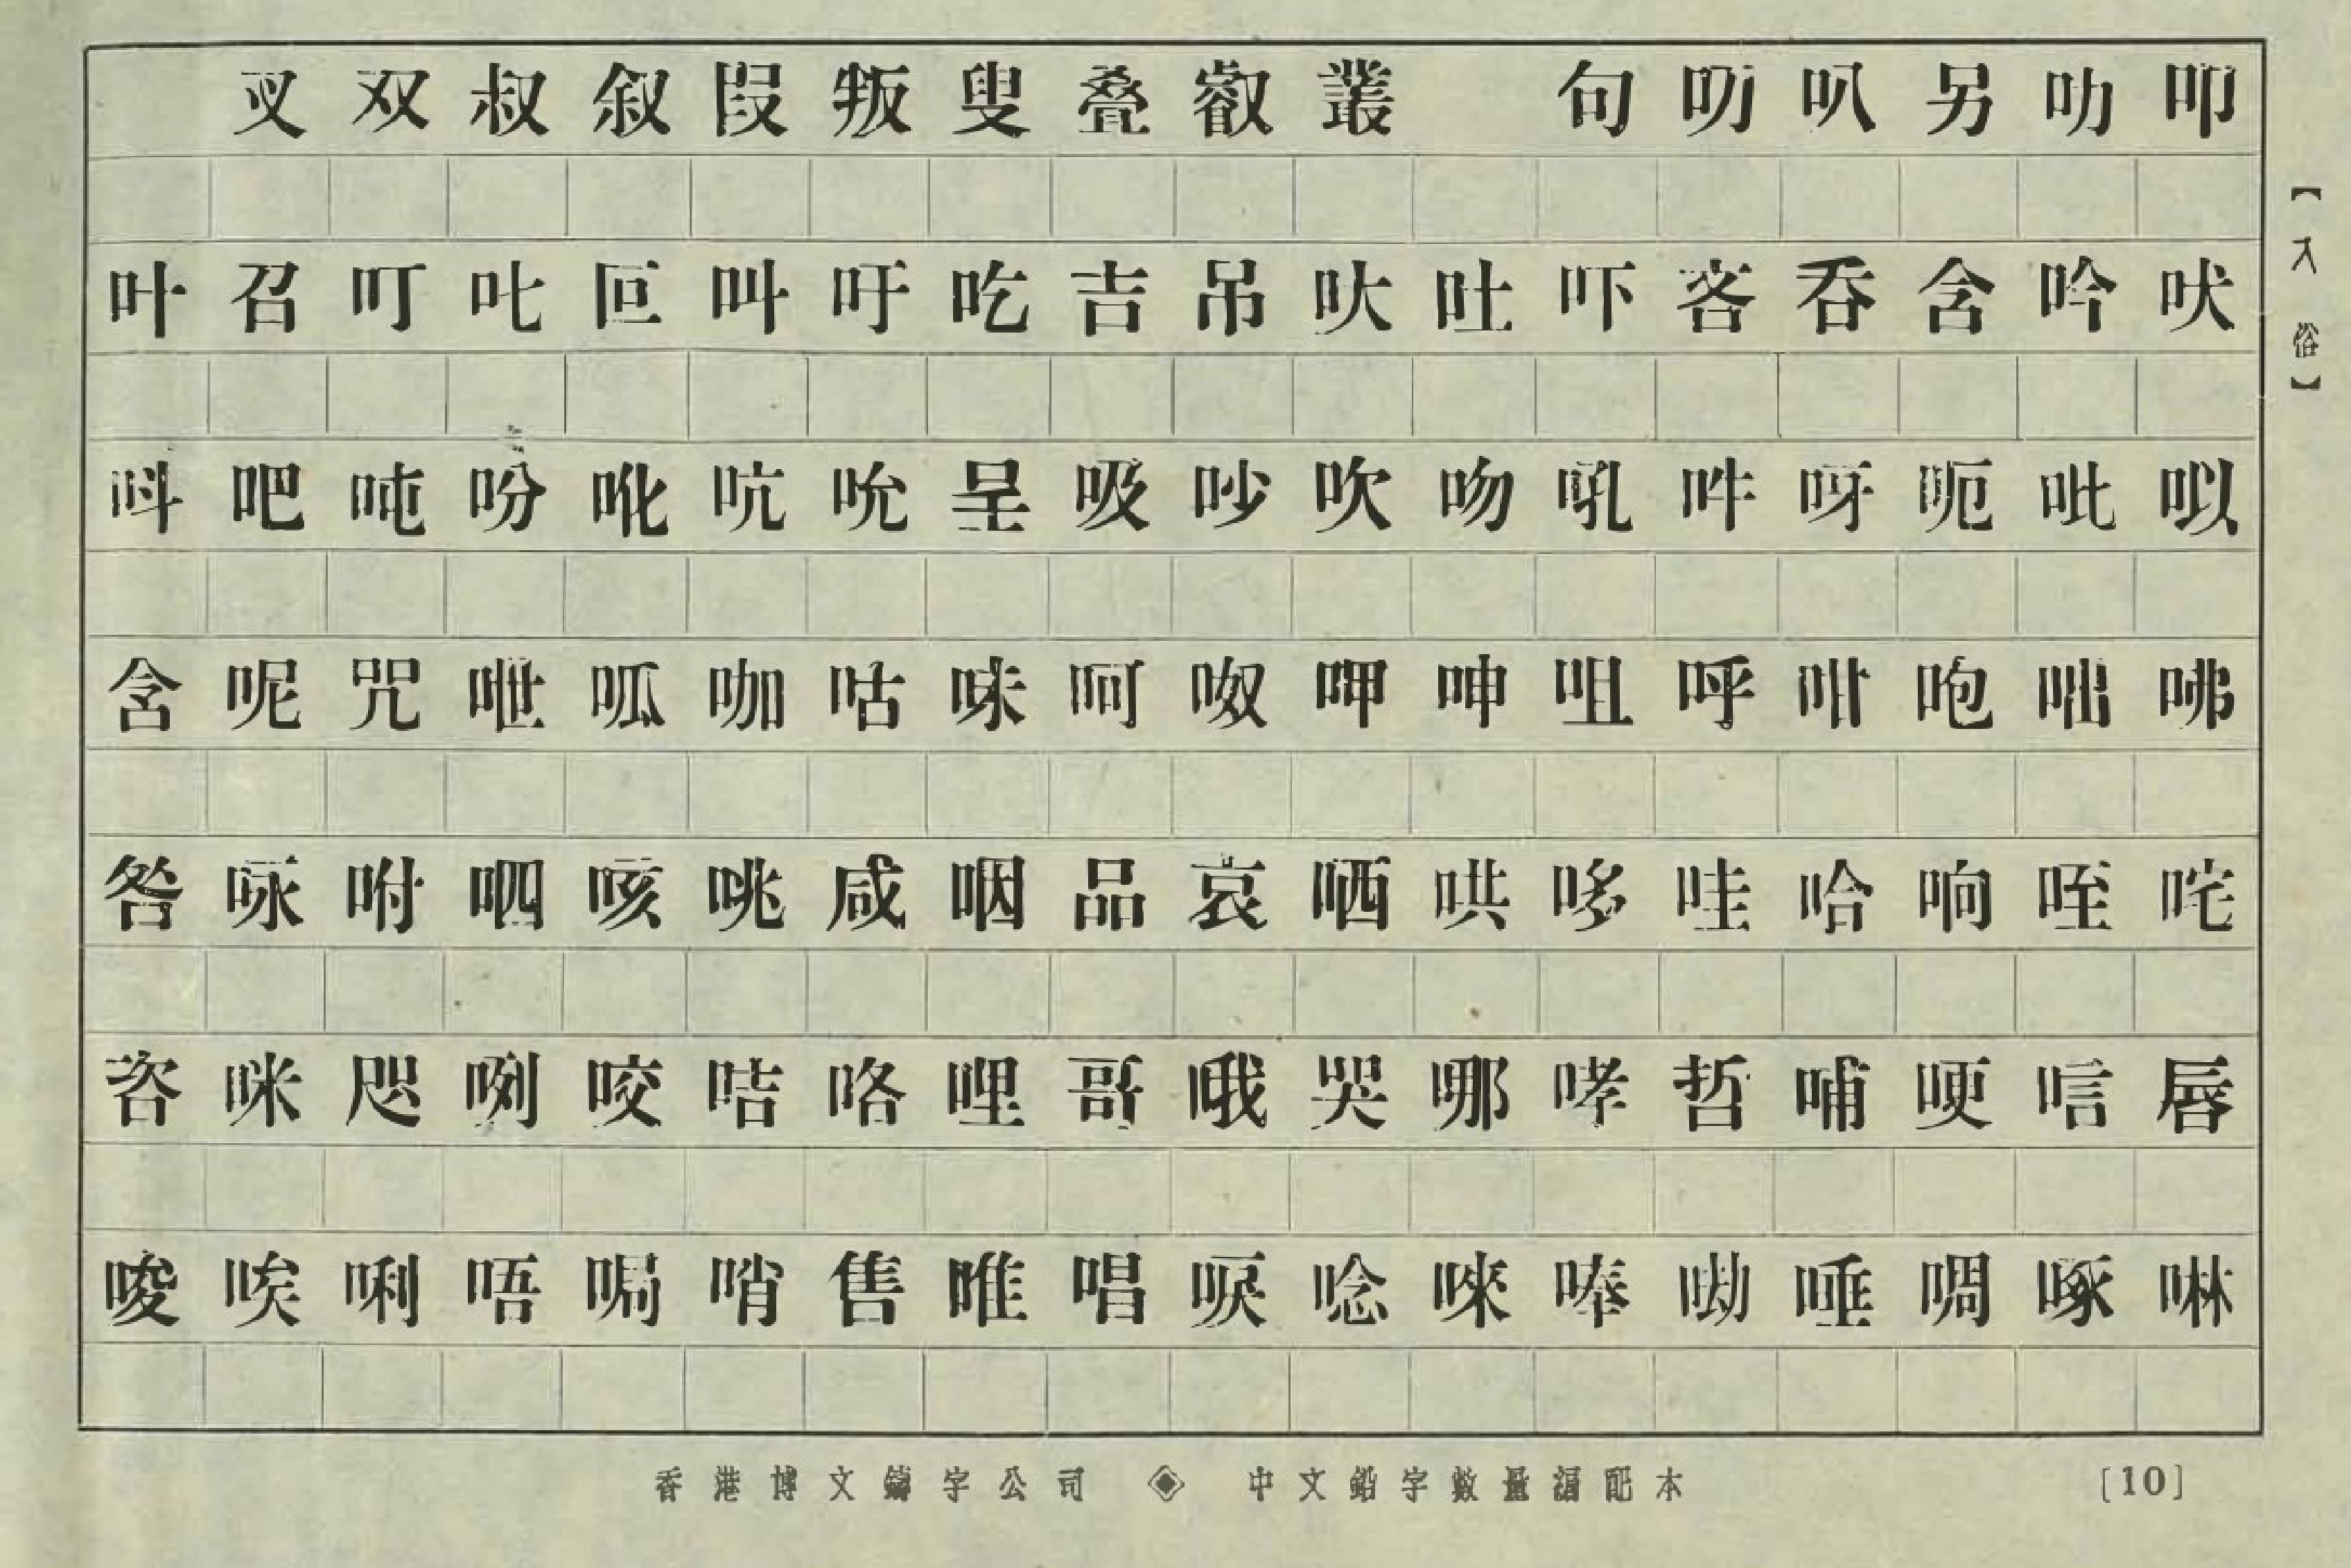 叉 双 叔 叙 叚 叛 叟 叠 叡 叢 句 叨 叭 另 叻 叩
叶 召 叮 叱 叵 叫 吁 吃 吉 吊 吐 吓 吝 吞 含 吟 吠
呌 吧 吨 吩 吪 吭 吮 呈 吸 吵 吹 吻 吼 吽 呀 呃 吡 㕥
含 呢 咒 呭 呱 咖 咕 味 呵 呶 呷 呻 咀 呼 咁 咆 咄 咈
咎 咏 咐 呬 咳 咷 咸 咽 品 哀 哂 哄 哆 哇 哈 响 咥 咤
咨 咪 咫 咧 咬 咭 咯 哩 哥 哦 哭 哪 哮 哲 哺 哽 唁 唇
唆 唉 唎 唔 哨 售 唯 唱 唳 唸 唻 唪 呦 唾 啁 啄 啉
【入俗】
香港博文鑄字公司 ◈ 中文鉛字數量調配本
[10]